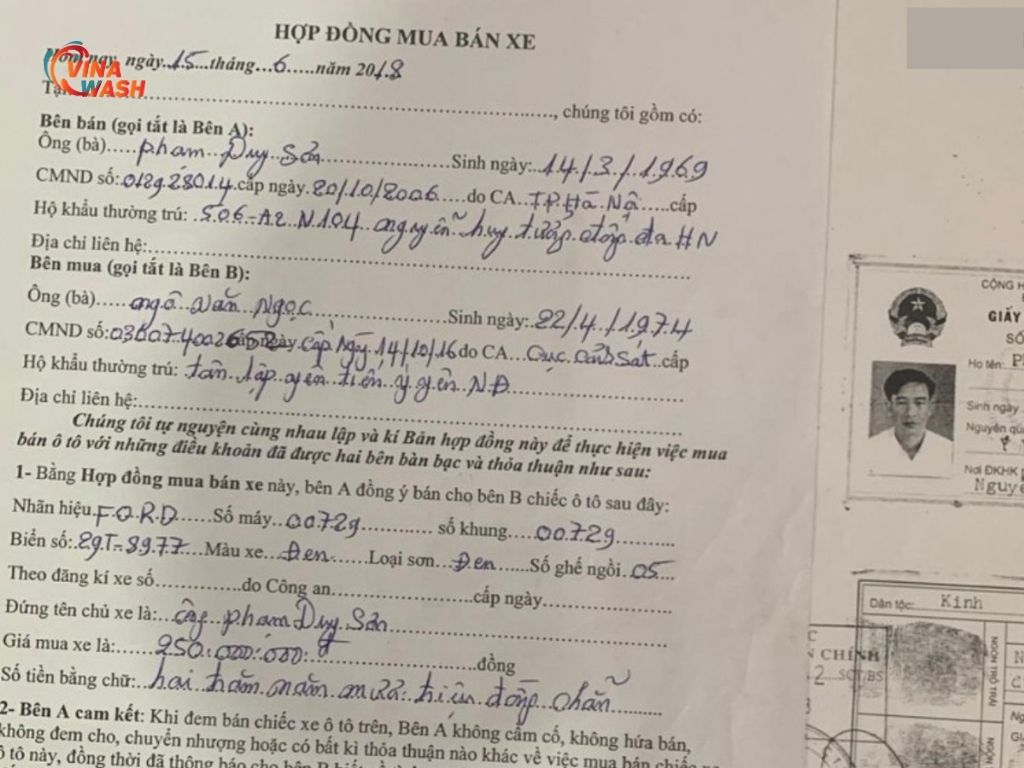 VINA
WASH
HỢP ĐỒNG MUA BÁN XE
Hôm nay, ngày 15 tháng 6 năm 2018
Tại ..., chúng tôi gồm có:
Bên bán (gọi tắt là Bên A):
Ông (bà) phạm Duy Sản Sinh ngày: 14/3/1969
CMND số: 012928014 cấp ngày 20/10/2006 do CA TP Hà Nội cấp
Hộ khẩu thường trú: 506-A2 N104 nguyễn huy tưởng đống đa HN
Địa chỉ liên hệ:
Bên mua (gọi tắt là Bên B):
Ông (bà) ngô Văn Ngọc Sinh ngày: 22/4/1974
CMND số: cấp ngày 14/10/16 do CA Cục cảnh sát cấp
Hộ khẩu thường trú: tân lập yên tiến ý yên NĐ
Địa chỉ liên hệ:
Chúng tôi tự nguyện cùng nhau lập và kí Bản hợp đồng này để thực hiện việc mua
bán ô tô với những điều khoản đã được hai bên bàn bạc và thỏa thuận như sau:
1- Bằng Hợp đồng mua bán xe này, bên A đồng ý bán cho bên B chiếc ô tô sau đây:
Nhãn hiệu FORD Số máy 00729 số khung 00729
Biển số: 29T-8977 Màu xe Đen Loại sơn Đen Số ghế ngồi 05
Theo đăng kí xe số do Công an cấp ngày
Đứng tên chủ xe là: ông phạm Duy Sản
Giá mua xe là: 250.000.000đ đồng
Số tiền bằng chữ: hai trăm năm mươi triệu đồng chẵn
2- Bên A cam kết: Khi đem bán chiếc xe ô tô trên, Bên A không cầm cố, không hứa bán,
không đem cho, chuyển nhượng hoặc có bất kì thỏa thuận nào khác về việc mua bán chiếc
ô tô này, đồng thời đã thông báo cho bên B biết
CỘNG H
GIẤY
SỐ
Họ tên: P
Sinh ngày
Nguyên qu
Nơi ĐKHK
Nguy
Dân tộc: Kinh
NGÓN TRỎ TRÁI
NGÓN
N CHÍNH
SCT/BS